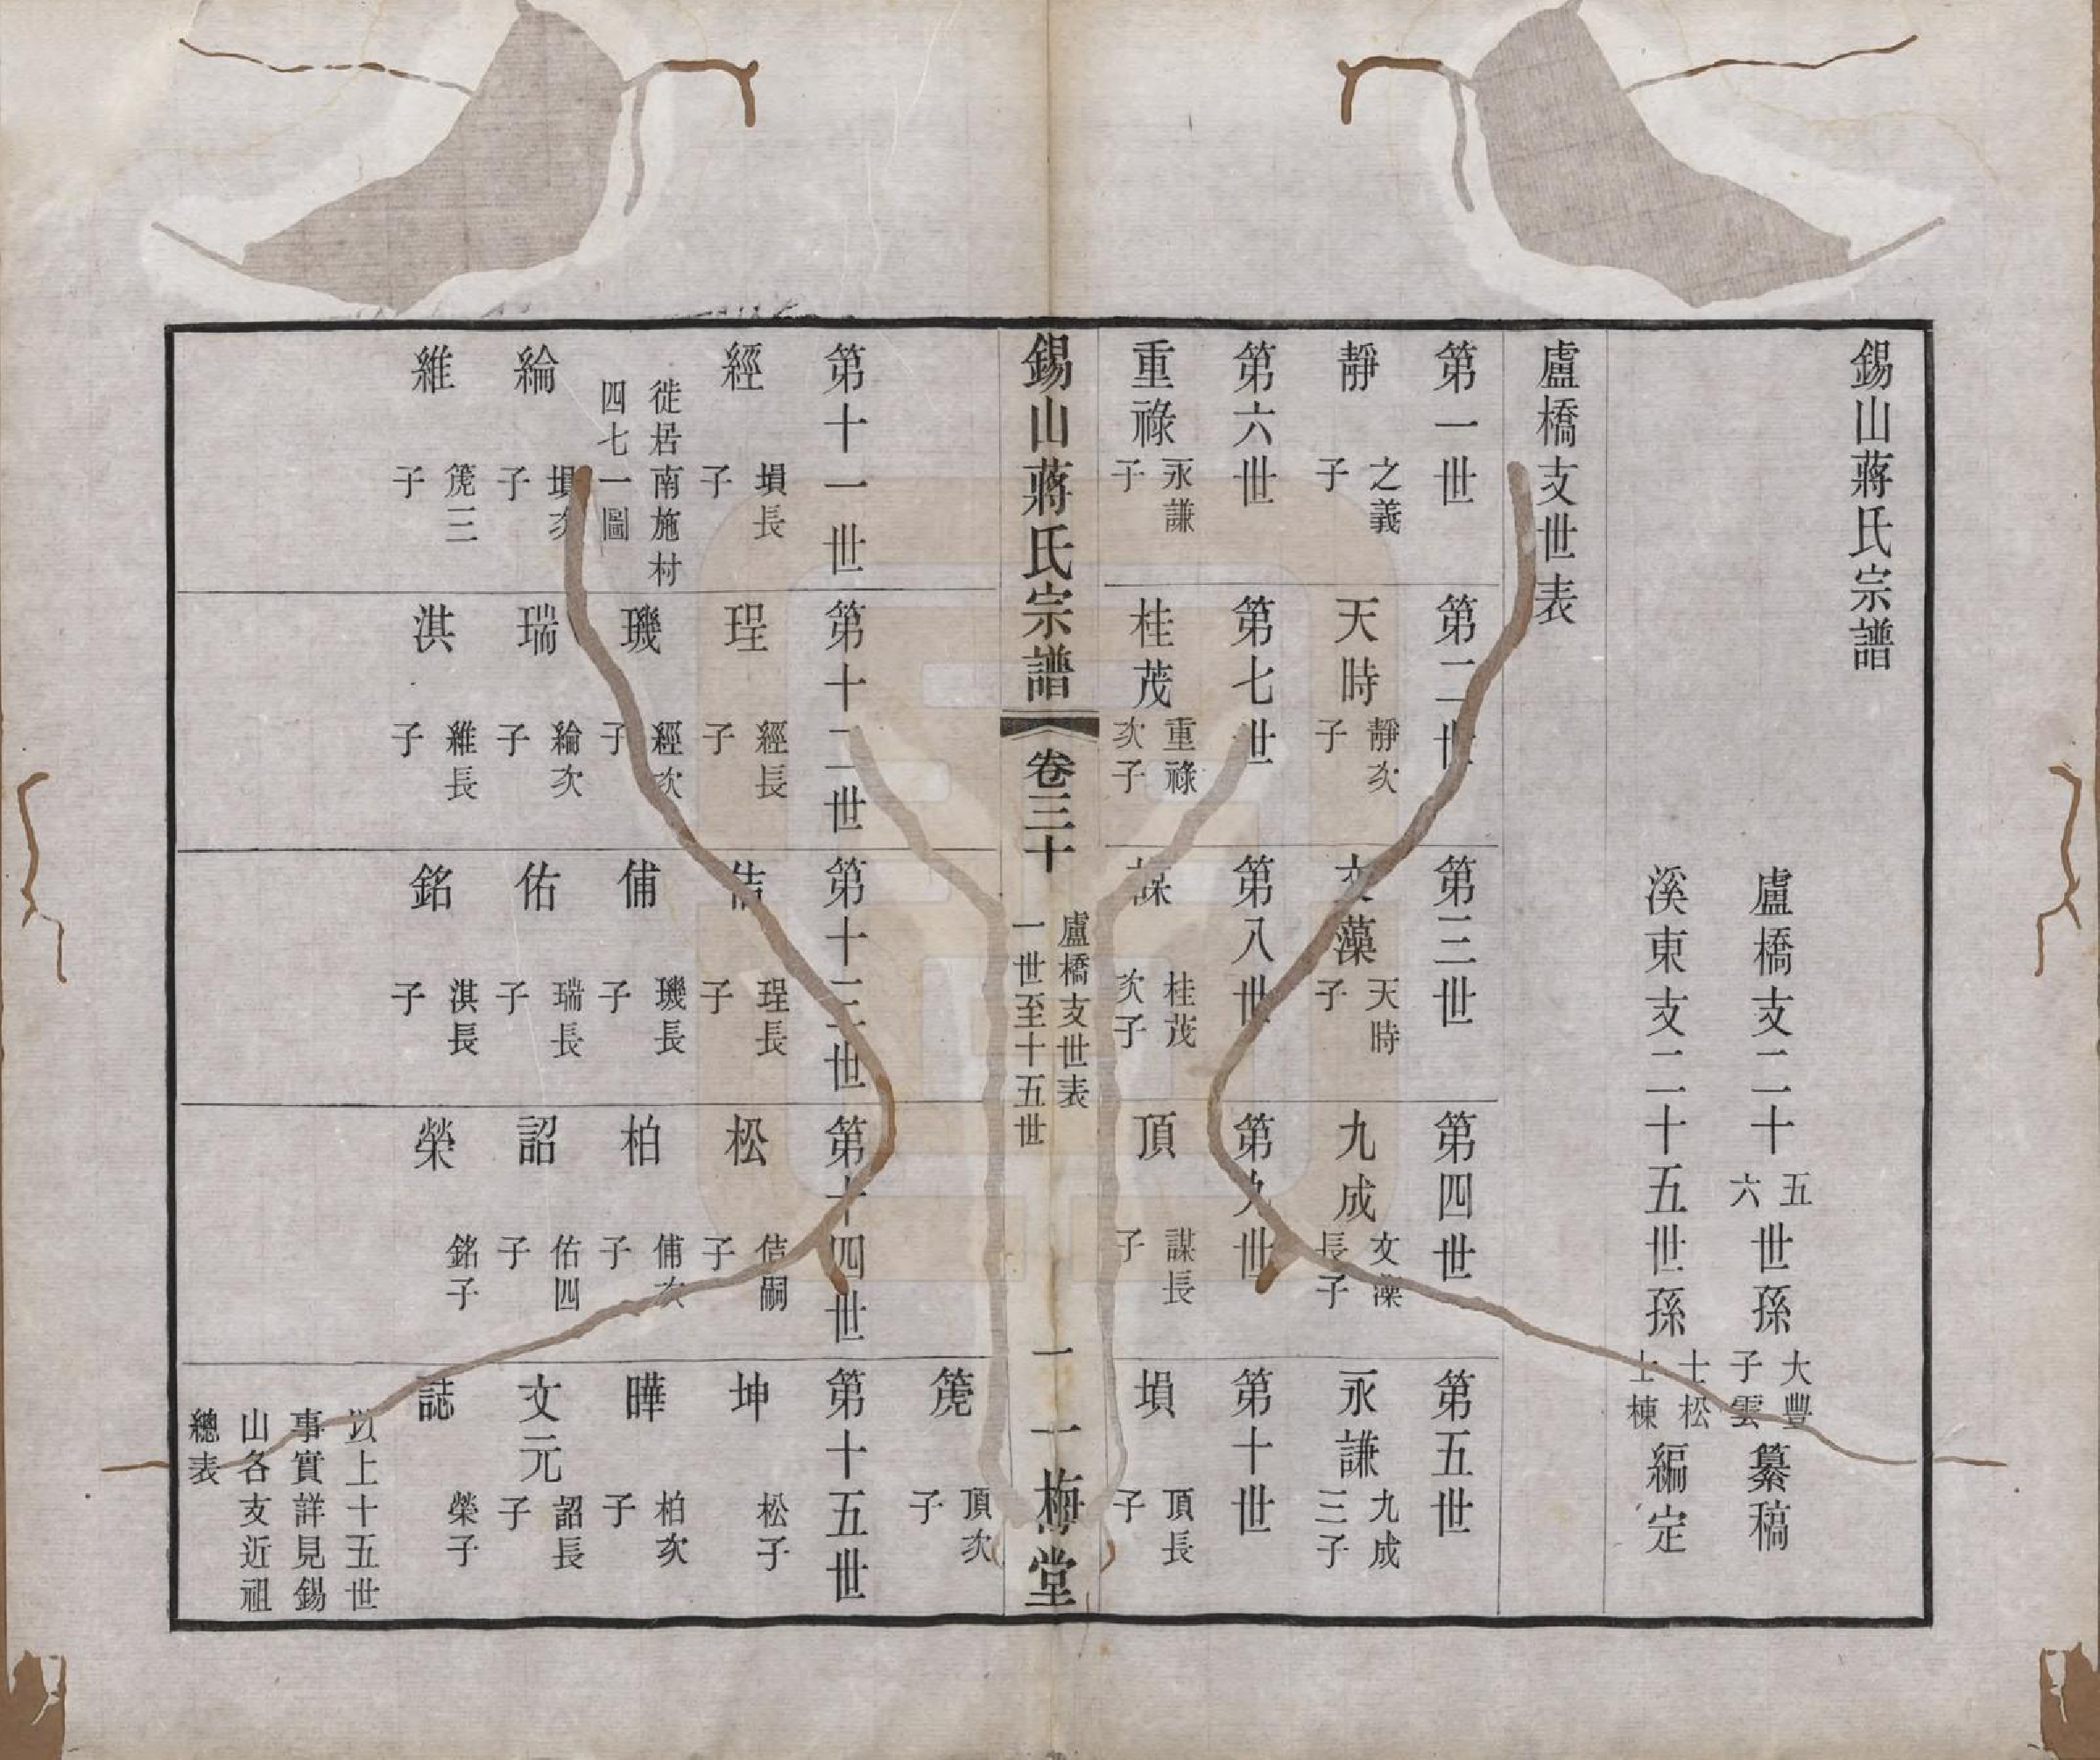 錫山蔣氏宗譜
盧橋支二十五六世孫大豐子雲纂稿
溪東支二十五世孫士松士棟編定
盧橋支世表
第一世
第二世
第三世
第四世
第五世
靜 之義子
天時 靜次子
文藻 天時子
九成 文藻長子
永謙 九成三子
第六世
第七世
第八世
第九世
第十世
重祿 永謙子
桂茂 重祿次子
謀 桂茂次子
頂 謀長子
塤 頂長子
錫山蔣氏宗譜 卷三十 盧橋支世表 一世至十五世 一 一梅堂
箎 頂次子
第十一世
第十二世
第十三世
第十四世
第十五世
經 塤長子
珵 經長子
佶 珵長子
松 佶嗣子
坤 松子
徙居南施村四七一圖
璣 經次子
俌 璣長子
柏 俌次子
曄 柏次子
綸 塤次子
瑞 綸次子
佑 瑞長子
詔 佑四子
文元 詔長子
維 箎三子
淇 維長子
銘 淇長子
榮 銘子
誌 榮子
以上十五世
事實詳見錫
山各支近祖
總表